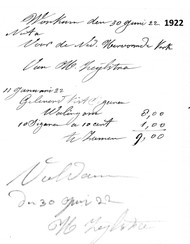 Workum den 30 Juni 22. 1922
Nota
Voor de Ned. Hervormde Kerk
Van H Zijlstra
11 Januari 22
Geleverd
8,00
10 Sigaren a 10 cent 1,00
te Zamen 9,00
Voldaan
den 30 Juni 22
H Zijlstra